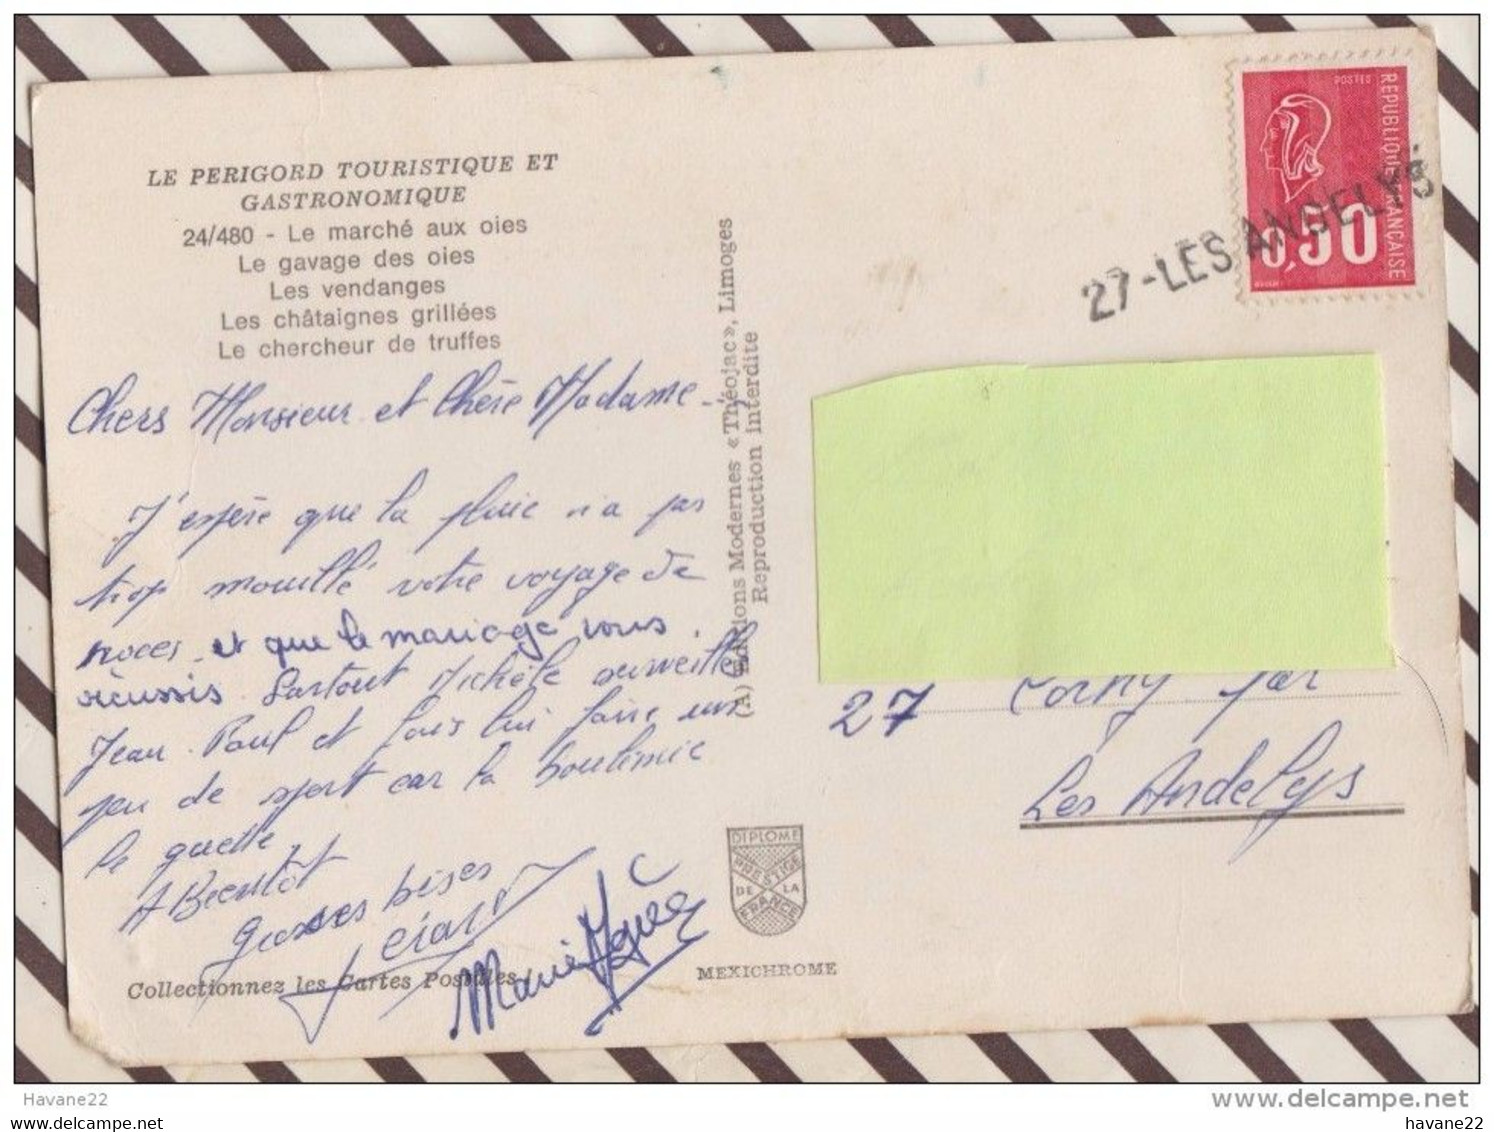 LE PERIGORD TOURISTIQUE ET
GASTRONOMIQUE
24/480 - Le marché aux oies
Le gavage des oies
Les vendanges
Les châtaignes grillées
Le chercheur de truffes
Chers Monsieur et Chère Madame
J'espère que la pluie n'a pas
trop mouillé votre voyage de
noces et que le mariage vous
réussis. Surtout Michèle surveille
Jean Paul et fais lui faire un
peu de sport car la boulimie
le guette,
A Bientôt
grosses bises
Gérard
Marie Agnès
Collectionnez les Cartes Postales
(A) Editions Modernes «Théojac», Limoges
Reproduction interdite
DIPLOME
PRESTIGE
DE LA
FRANCE
MEXICHROME
POSTES
REPUBLIQUE FRANÇAISE
0,50
27-LES ANDELYS
27 Corny par
Les Andelys
Havane22
www.delcampe.net
havane22